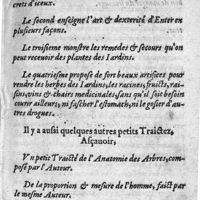 crets d'iceux.
Le second enseigne l'art & dexterité d'Enter en
plusieurs façons.
Le troisieme monstre les remedes & secours qu'on
peut recevoir des plantes des Iardins.
Le quatriesme propose de fort beaux artifices pour
rendre les herbes des Iardins, les racines, fruicts, rai-
sins, vins & chairs medicinales, sans qu'il soit besoin
courir ailleurs, ni fascher l'estomach, ni le gosier d'au-
tres drogues.
Il y a aussi quelques autres petits Traictez,
Asçauoir,
Vn petit Traicté de l'Anatomie des Arbres, com-
posé par l'Auteur.
De la proportion & mesure de l'homme, faict par
le mesme Auteur.